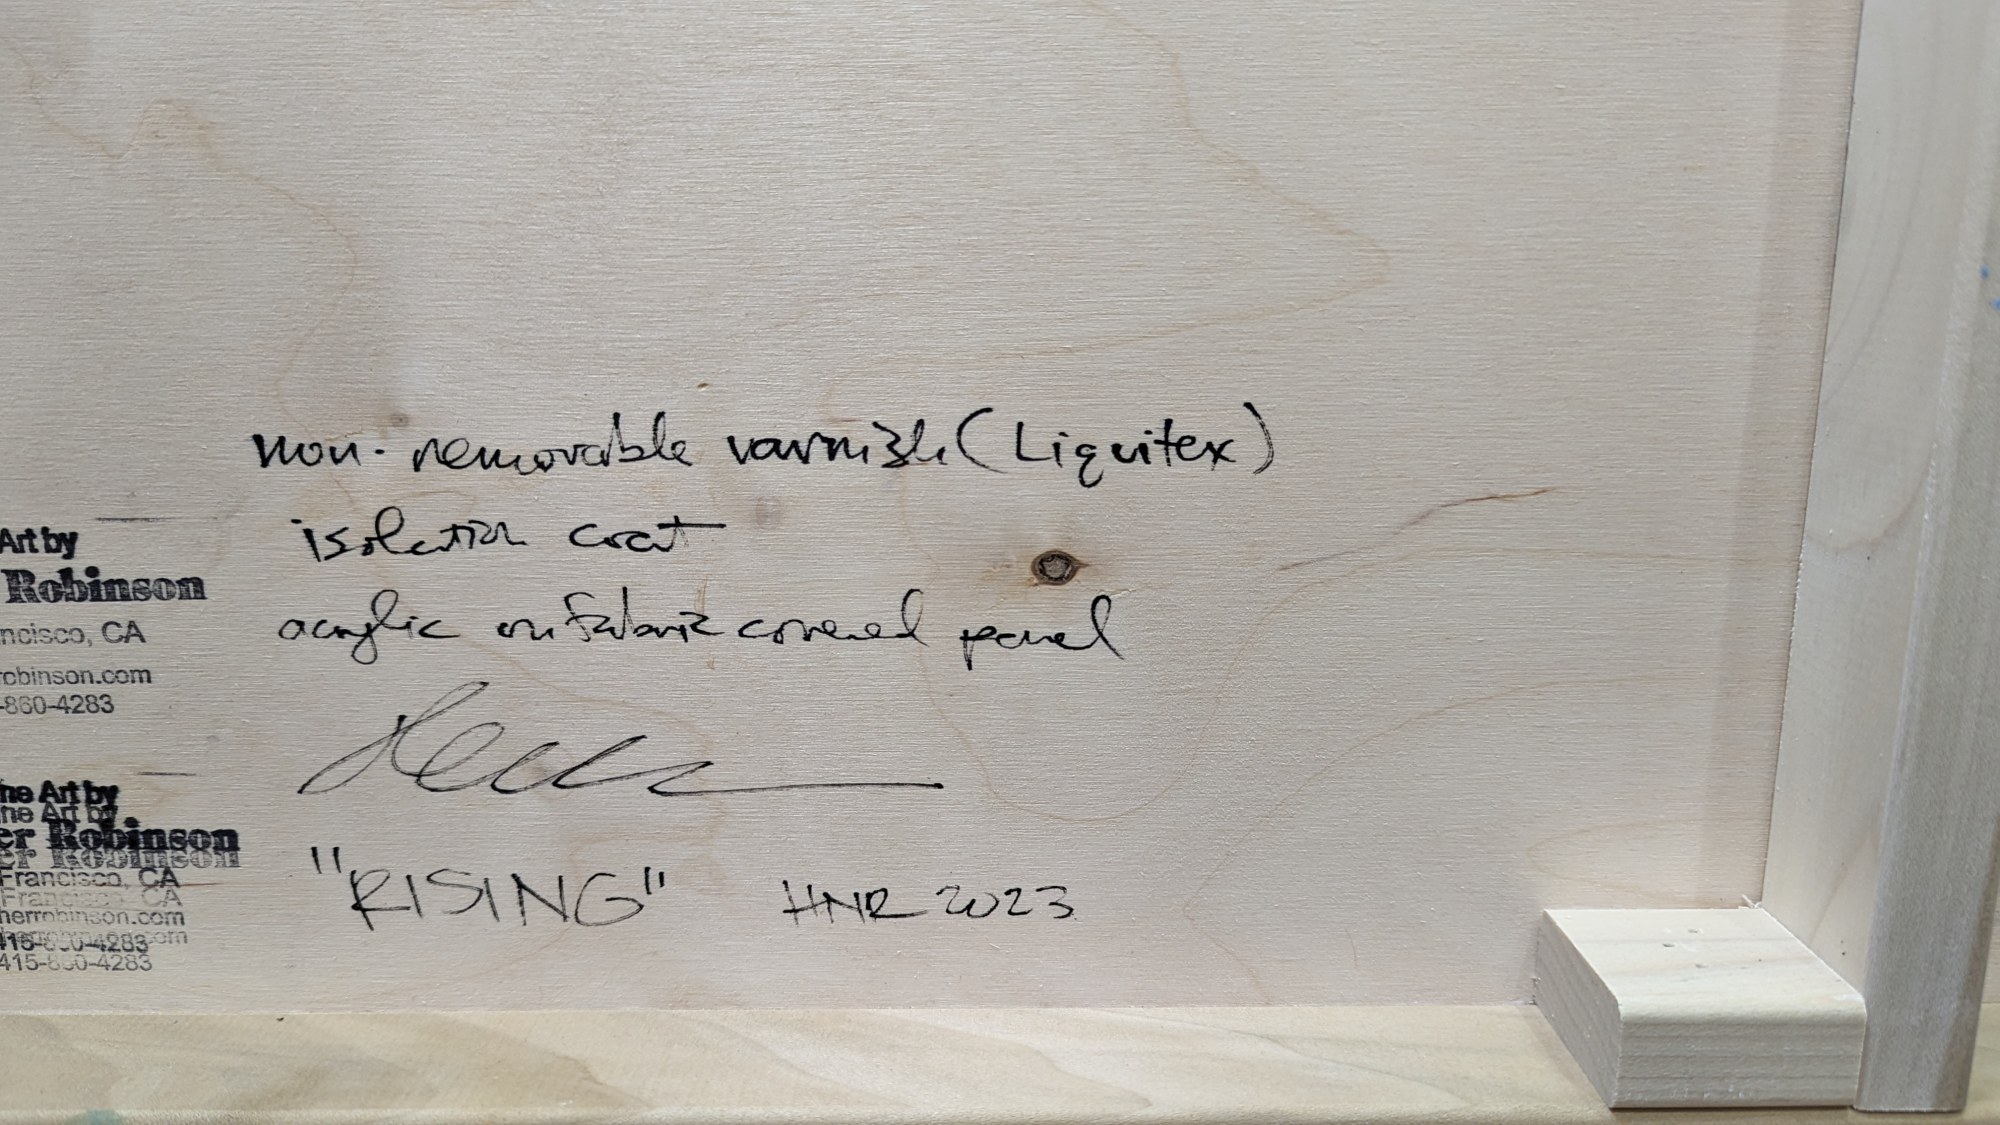 non-removable varnish (Liquitex)
isolation coat
acrylic on fabric covered panel
"RISING" HNR 2023
Art by
Robinson
ncisco, CA
robinson.com
-860-4283
ne Art by
ne Art by
er Robinson
er Robinson
Francisco, CA
Francisco, CA
herrobinson.com
415-860-4283
415-860-4283